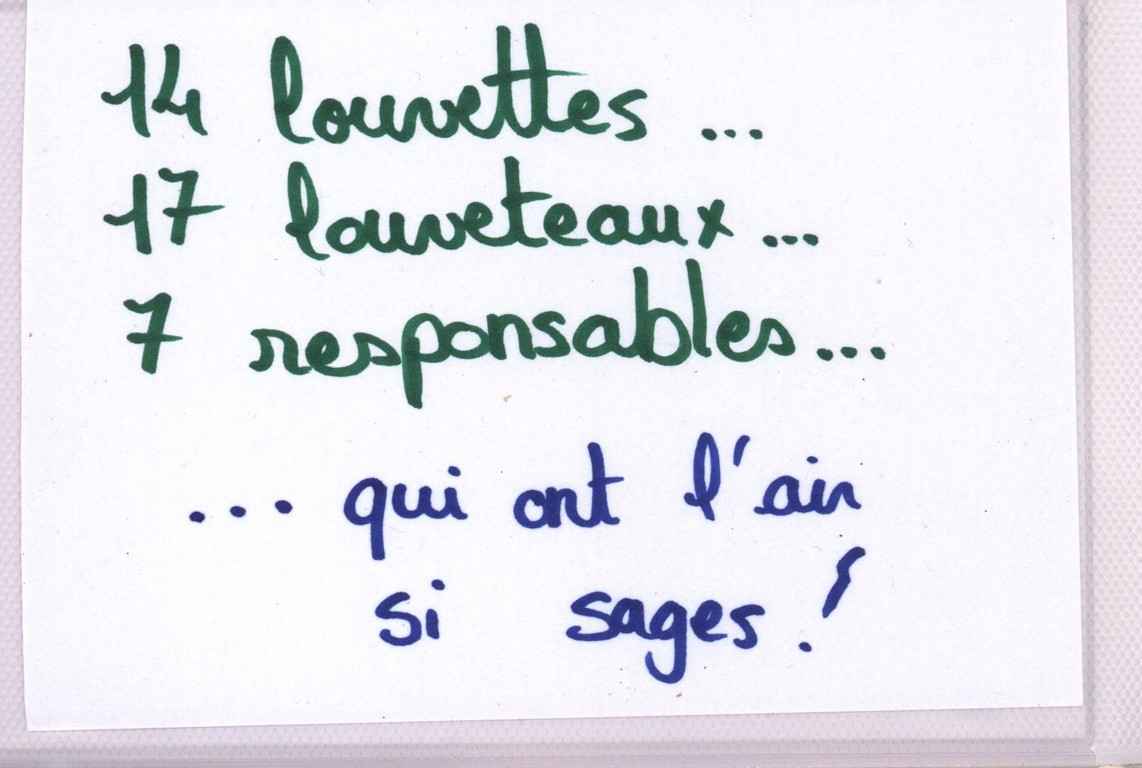 14 louvettes ...
17 louveteaux ...
7 responsables ...
... qui ont l'air
si sages !